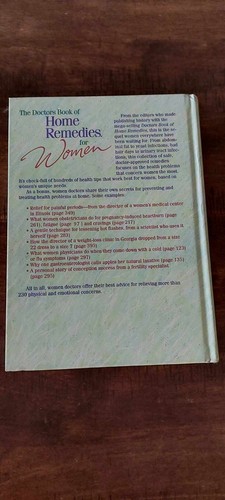 The Doctors Book of
Home
Remedies
for
Women
From the editors who made
publishing history with the
mega-selling Doctors Book of
Home Remedies, this is the se-
quel women everywhere have
been waiting for. From abdom-
inal fat to yeast infections, bad
hair days to urinary tract infec-
tions, this collection of safe,
doctor-approved remedies
focuses on the health problems
that concern women the most.
It's chock-full of hundreds of health tips that work best for women, based on
women's unique needs.
As a bonus, women doctors share their own secrets for preventing and
treating health problems at home. Some examples:
• Relief for painful periods—from the director of a women's medical center
in Illinois (page 349)
• What women obstetricians do for pregnancy-induced heartburn (page
261), fatigue (page ) and cravings (page 217)
• A gentle technique for lessening hot flashes, from a scientist who uses it
herself (page 261)
• How the director of a weight-loss clinic in Georgia dropped from a size
22 dress to a size 7 (page 393)
• What women physicians do when they come down with a cold (page 123)
or flu symptoms (page 207)
• Why one gastroenterologist calls apples her natural laxative (page 131)
• A personal story of conception success from a fertility specialist
(page 295)
All in all, women doctors offer their best advice for relieving more than
230 physical and emotional concerns.